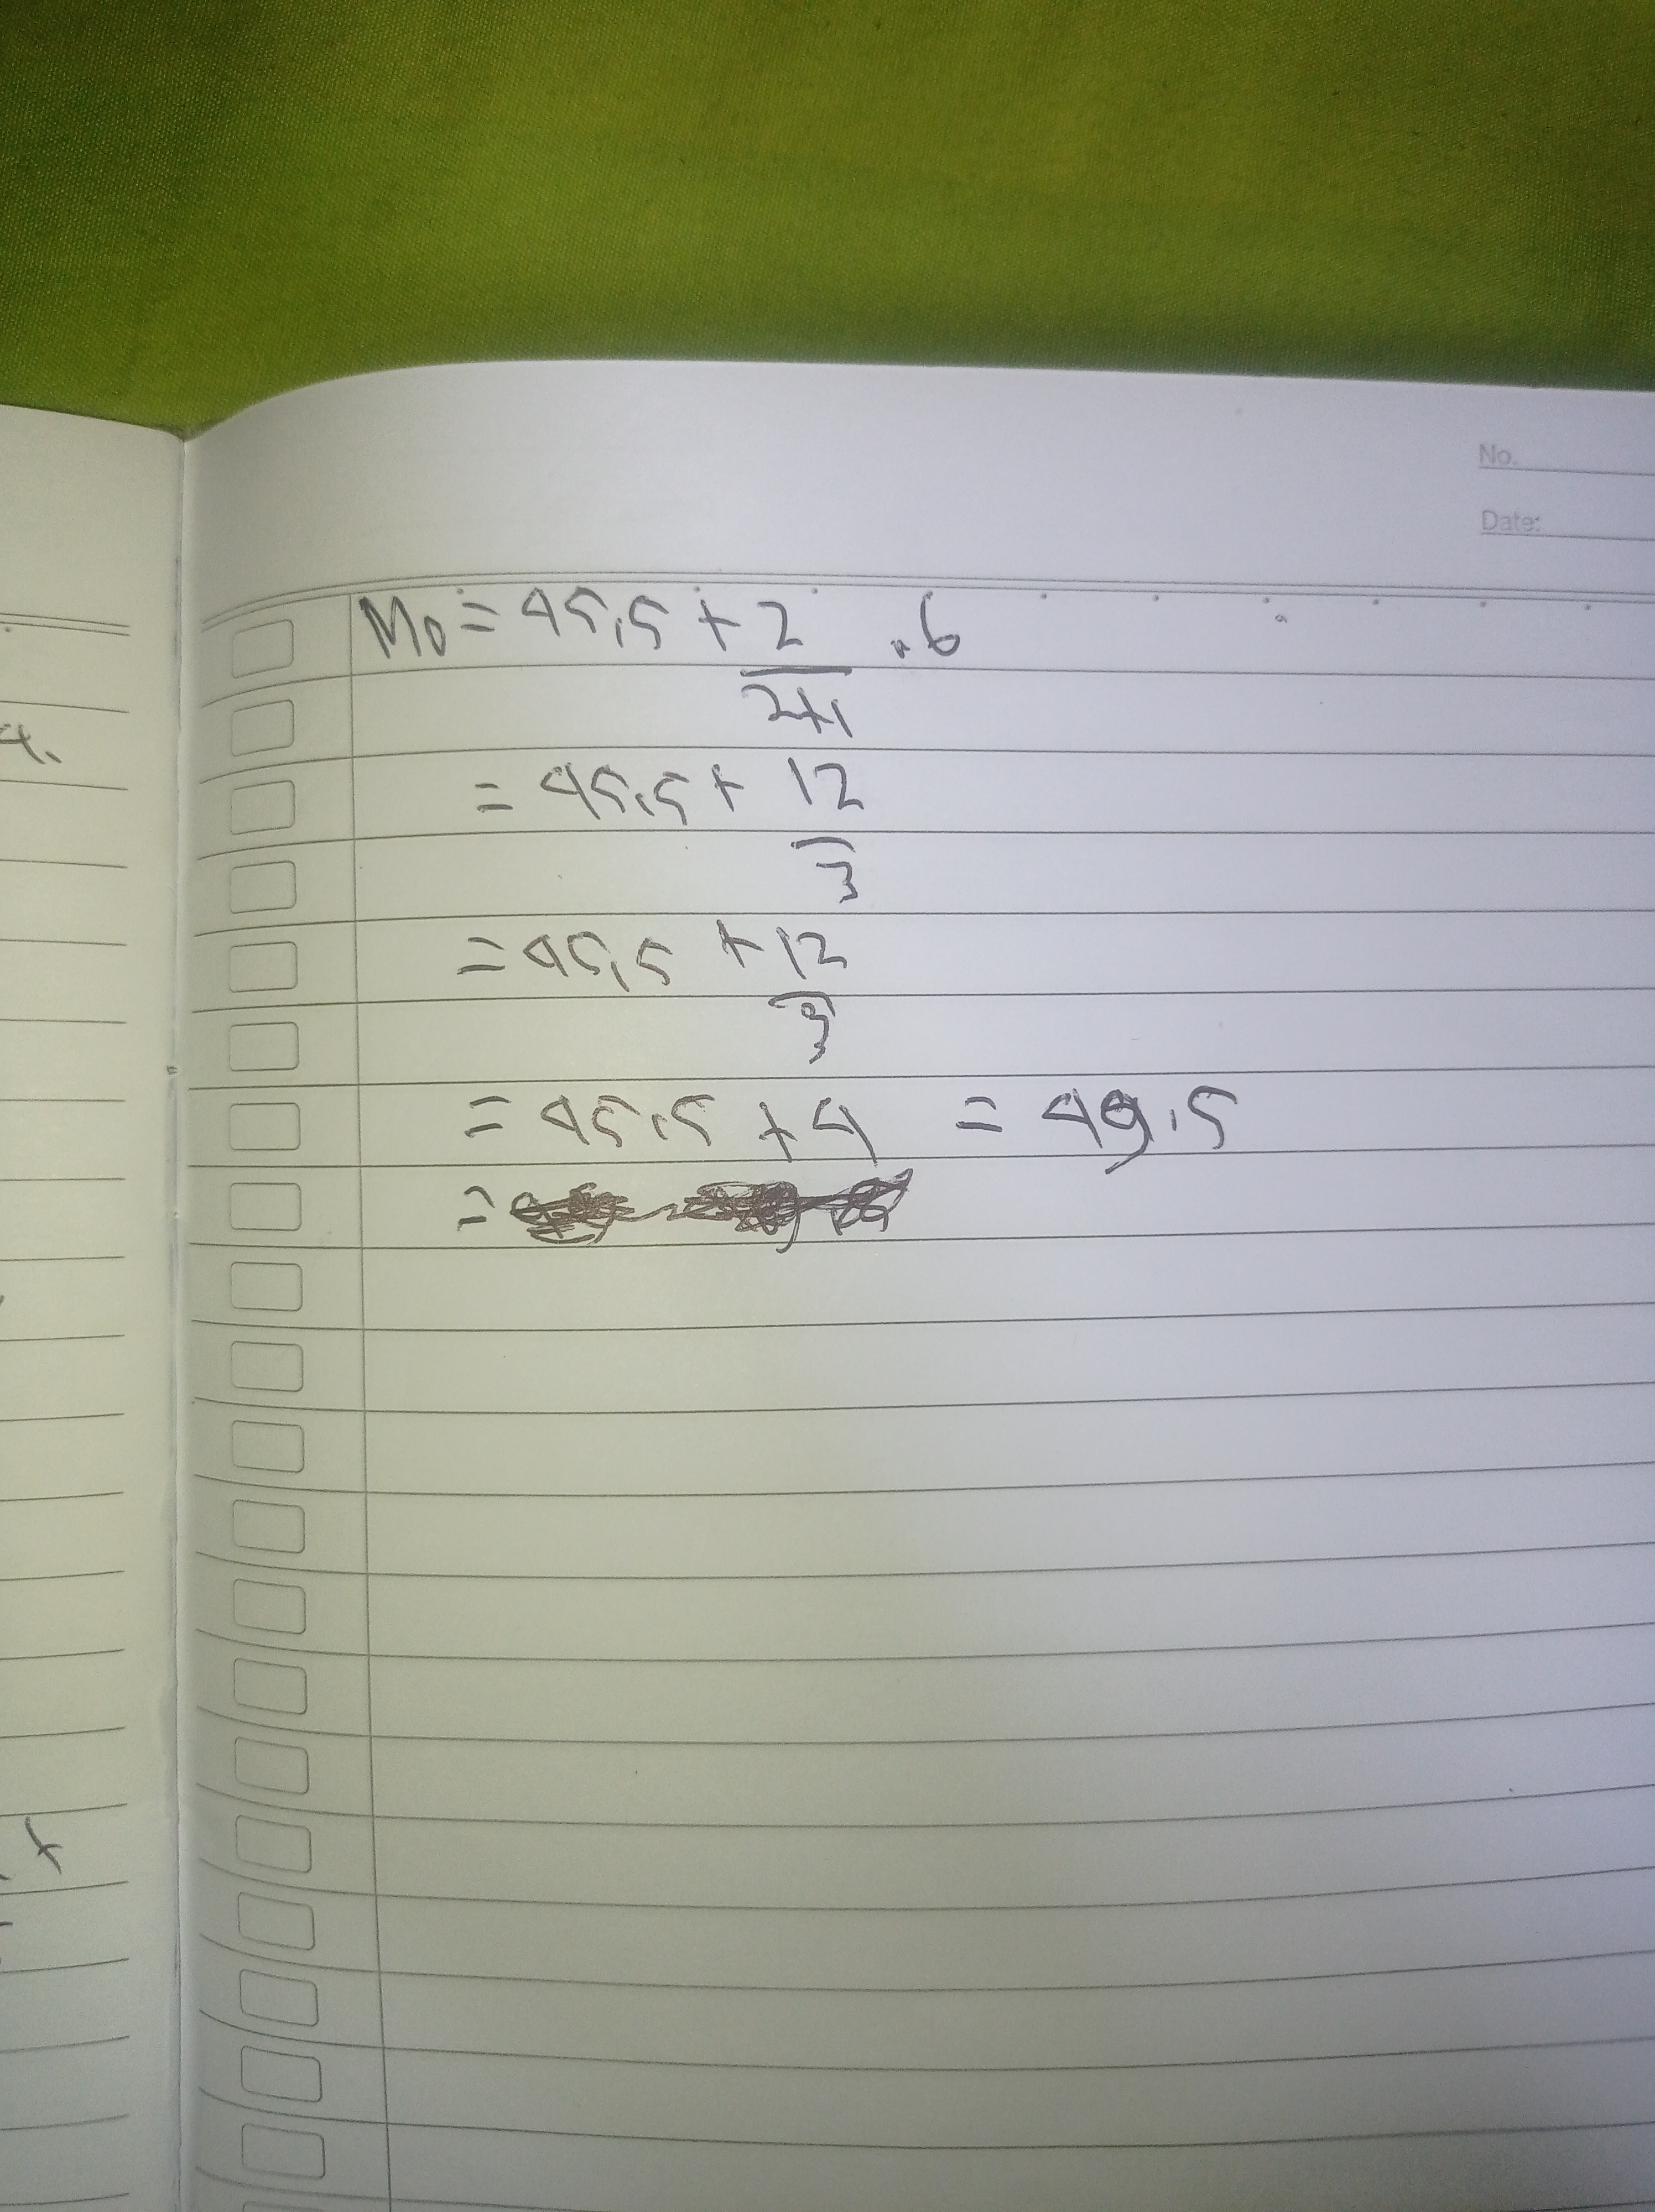 No.
Date:
Mo = 45,5 + 2/2+1 . 6
= 45,5 + 12/3
= 45,5 + 12/3
= 45,5 + 4 = 49,5
=
4.